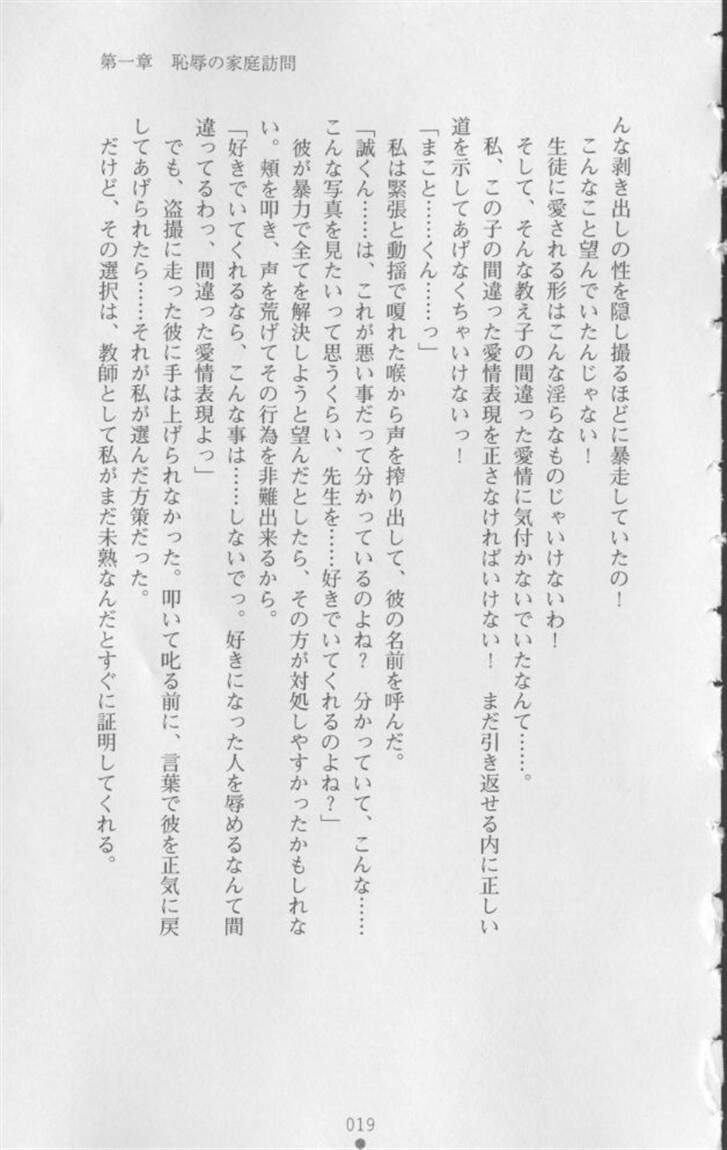 第一章　恥辱の家庭訪問
んな剥き出しの性を隠し撮るほどに暴走していたの！
こんなこと望んでいたんじゃない！
生徒に愛される形はこんな淫らなものじゃいけないわ！
そして、そんな教え子の間違った愛情に気付かないでいたなんて……。
私、この子の間違った愛情表現を正さなければいけない！　まだ引き返せる内に正しい
道を示してあげなくちゃいけないっ！
「まこと……くん……っ」
私は緊張と動揺で嗄れた喉から声を搾り出して、彼の名前を呼んだ。
「誠くん……は、これが悪い事だって分かっているのよね？　分かっていて、こんな……
こんな写真を見たいって思うくらい、先生を……好きでいてくれるのよね？」
彼が暴力で全てを解決しようと望んだとしたら、その方が対処しやすかったかもしれな
い。頬を叩き、声を荒げてその行為を非難出来るから。
「好きでいてくれるなら、こんな事は……しないでっ。好きになった人を辱めるなんて間
違ってるわっ、間違った愛情表現よっ」
でも、盗撮に走った彼に手は上げられなかった。叩いて叱る前に、言葉で彼を正気に戻
してあげられたら……それが私が選んだ方策だった。
だけど、その選択は、教師として私がまだ未熟なんだとすぐに証明してくれる。
019